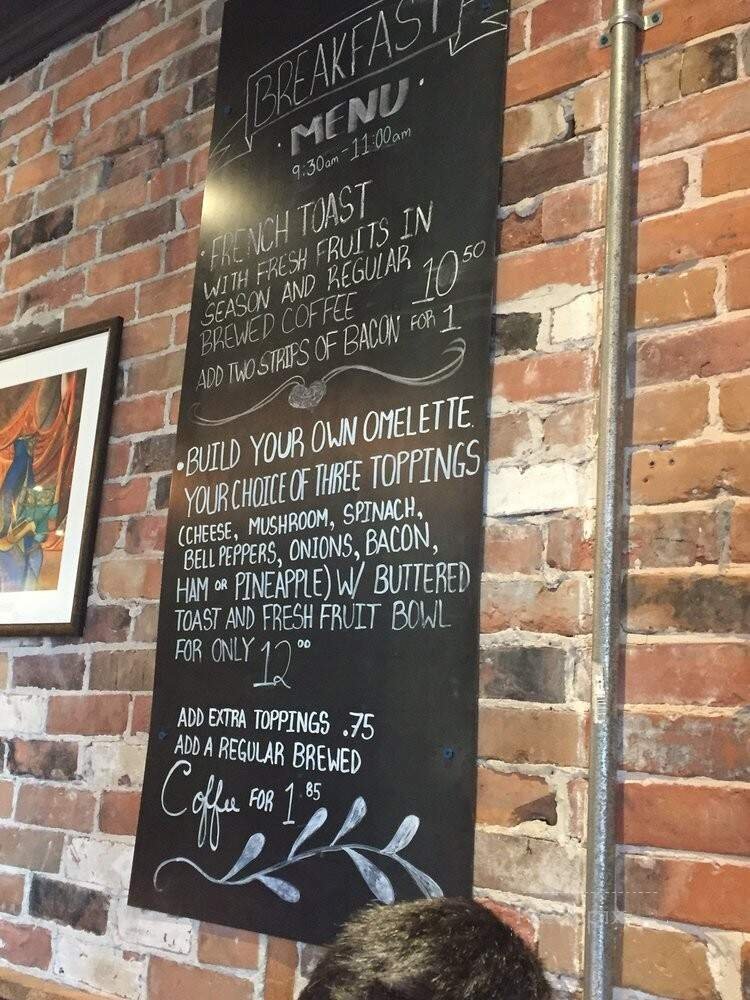 BREAKFAST
· MENU ·
9:30am-11:00am
· FRENCH TOAST
WITH FRESH FRUITS IN
SEASON AND REGULAR
BREWED COFFEE 10 50
ADD TWO STRIPS OF BACON FOR 1
• BUILD YOUR OWN OMELETTE.
YOUR CHOICE OF THREE TOPPINGS
(CHEESE, MUSHROOM, SPINACH,
BELL PEPPERS, ONIONS, BACON,
HAM OR PINEAPPLE) W/ BUTTERED
TOAST AND FRESH FRUIT BOWL
FOR ONLY 12 00
ADD EXTRA TOPPINGS .75
ADD A REGULAR BREWED
Coffee FOR 1.85